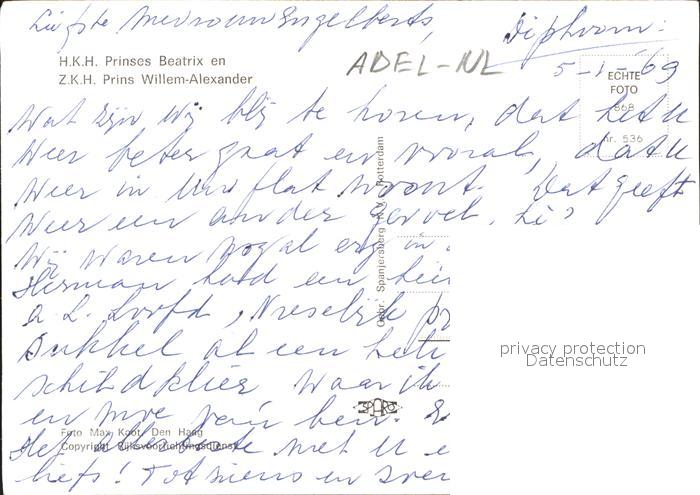 Liefste Mevrouw Engelberts,
Diphoorn:
5-1-'69
H.K.H. Prinses Beatrix en
Z.K.H. Prins Willem-Alexander
ADEL-NL
ECHTE
FOTO
868
nr. 536
Wat zijn wij blij te horen, dat het U
weer beter gaat en vooral, dat U
weer in Uw flat woont. Dat geeft
weer een ander gevoel.
Wij waren nogal erg in
Herman had een
a. L. hoofd, Vreselijk
Sukkel al een hele
schildklier waar ik
en moe van ben.
Het allerbeste met U
liefs! Tot ziens en
Gebr. Spanjersberg N.V. Rotterdam
SPARO
Foto Max Koot, Den Haag
Copyright Rijksvoorlichtingsdienst
privacy protection
Datenschutz